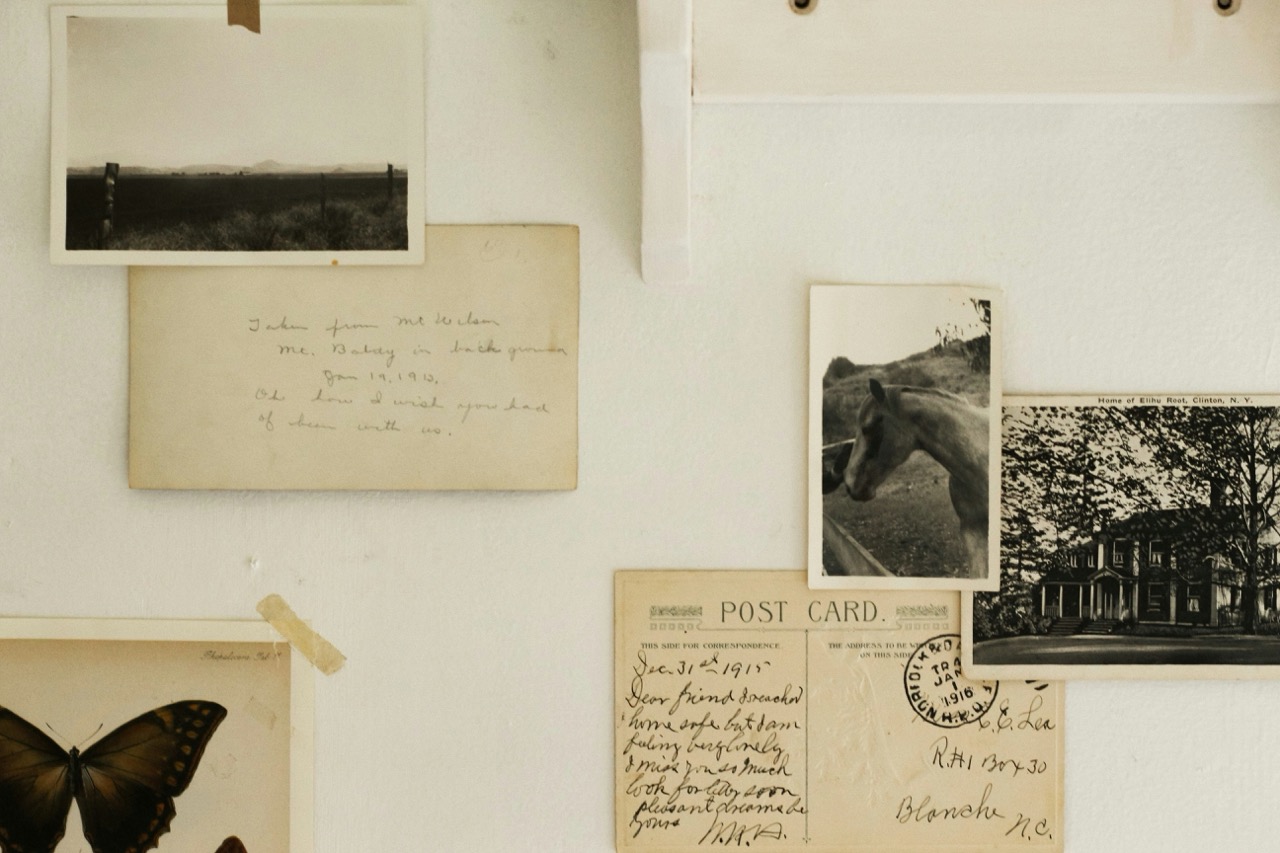 Taken from Mt Wilson
Mt. Baldy in back ground
Jan 19, 1913.
Oh how I wish you had
of been with us.
Home of Elihu Root, Clinton, N. Y.
POST CARD.
THIS SIDE FOR CORRESPONDENCE
THE ADDRESS TO BE
ON THIS SIDE
Dec 31st 1915
Dear friend I reached
home safe but I am
feeling very lonely
I miss you so much
look for letter soon
pleasant dreams be
yours
NORFOLK &
TRA
JAN
1
1916
R.P.O.
C. E. Lea
R.#1 Box 30
Blanche
N.C.